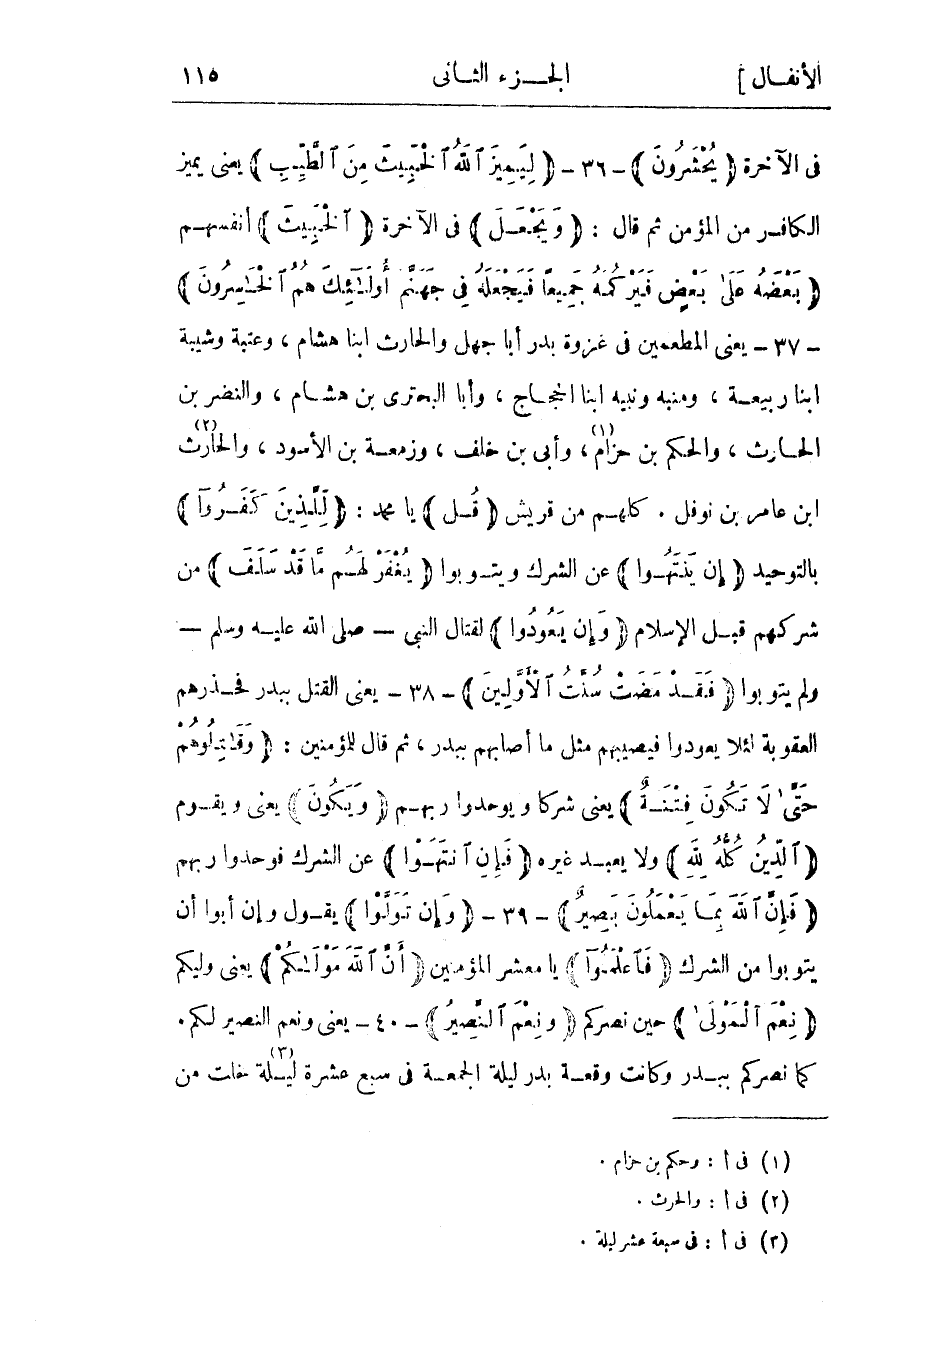 الأنفال] الجزء الثانى ١١٥
فى الآخرة ﴿ يُحْشَرُونَ ﴾ - ٣٦ - ﴿ لِيَمِيزَ ٱللَّهُ ٱلْخَبِيثَ مِنَ ٱلطَّيِّبِ ﴾ يعنى يميز
الكافر من المؤمن ثم قال : ﴿ وَيَجْعَلَ ﴾ فى الآخرة ﴿ ٱلْخَبِيثَ ﴾ أنفسهم
﴿ بَعْضَهُ عَلَىٰ بَعْضٍ فَيَرْكُمَهُ جَمِيعًا فَيَجْعَلَهُ فِى جَهَنَّمَ أُولَـٰٓئِكَ هُمُ ٱلْخَـٰسِرُونَ ﴾
- ٣٧ - يعنى المطعمين فى غزوة بدر أبا جهل والحارث ابنا هشام ، وعتبة وشيبة
ابنا ربيعة ، ومنبه ونبيه ابنا الحجاج ، وأبا البحترى بن هشام ، والنضر بن
الحارث ، والحكم بن حزام(١)، وأبى بن خلف ، وزمعة بن الأسود ، والحارث(٢)
ابن عامر بن نوفل . كلهم من قريش ﴿ قُل ﴾ يا محمد : ﴿ لِّلَّذِينَ كَفَرُوٓا ﴾
بالتوحيد ﴿ إِن يَنتَهُوا ﴾ عن الشرك ويتوبوا ﴿ يُغْفَرْ لَهُم مَّا قَدْ سَلَفَ ﴾ من
شركهم قبل الإسلام ﴿ وَإِن يَعُودُوا ﴾ لقتال النبى — صلى الله عليه وسلم —
ولم يتوبوا ﴿ فَقَدْ مَضَتْ سُنَّتُ ٱلْأَوَّلِينَ ﴾ - ٣٨ - يعنى القتل ببدر فحذرهم
العقوبة لئلا يعودوا فيصيبهم مثل ما أصابهم ببدر ، ثم قال للمؤمنين : ﴿ وَقَـٰتِلُوهُمْ
حَتَّىٰ لَا تَكُونَ فِتْنَةٌ ﴾ يعنى شركا ويوحدوا ربهم ﴿ وَيَكُونَ ﴾ يعنى ويقوم
﴿ ٱلدِّينُ كُلُّهُ لِلَّهِ ﴾ ولا يعبد غيره ﴿ فَإِنِ ٱنتَهَوْا ﴾ عن الشرك فوحدوا ربهم
﴿ فَإِنَّ ٱللَّهَ بِمَا يَعْمَلُونَ بَصِيرٌ ﴾ - ٣٩ - ﴿ وَإِن تَوَلَّوْا ﴾ يقول وإن أبوا أن
يتوبوا من الشرك ﴿ فَٱعْلَمُوٓا ﴾ يا معشر المؤمنين ﴿ أَنَّ ٱللَّهَ مَوْلَـٰكُمْ ﴾ يعنى وليكم
﴿ نِعْمَ ٱلْمَوْلَىٰ ﴾ حين نصركم ﴿ وَنِعْمَ ٱلنَّصِيرُ ﴾ - ٤٠ - يعنى ونعم النصير لكم .
كما نصركم ببدر وكانت وقعة بدر ليلة الجمعة فى سبع عشرة ليلة(٣) خلت من
(١) فى أ : وحكم بن حزام .
(٢) فى أ : والحرث .
(٣) فى أ : فى سبعة عشر ليلة .